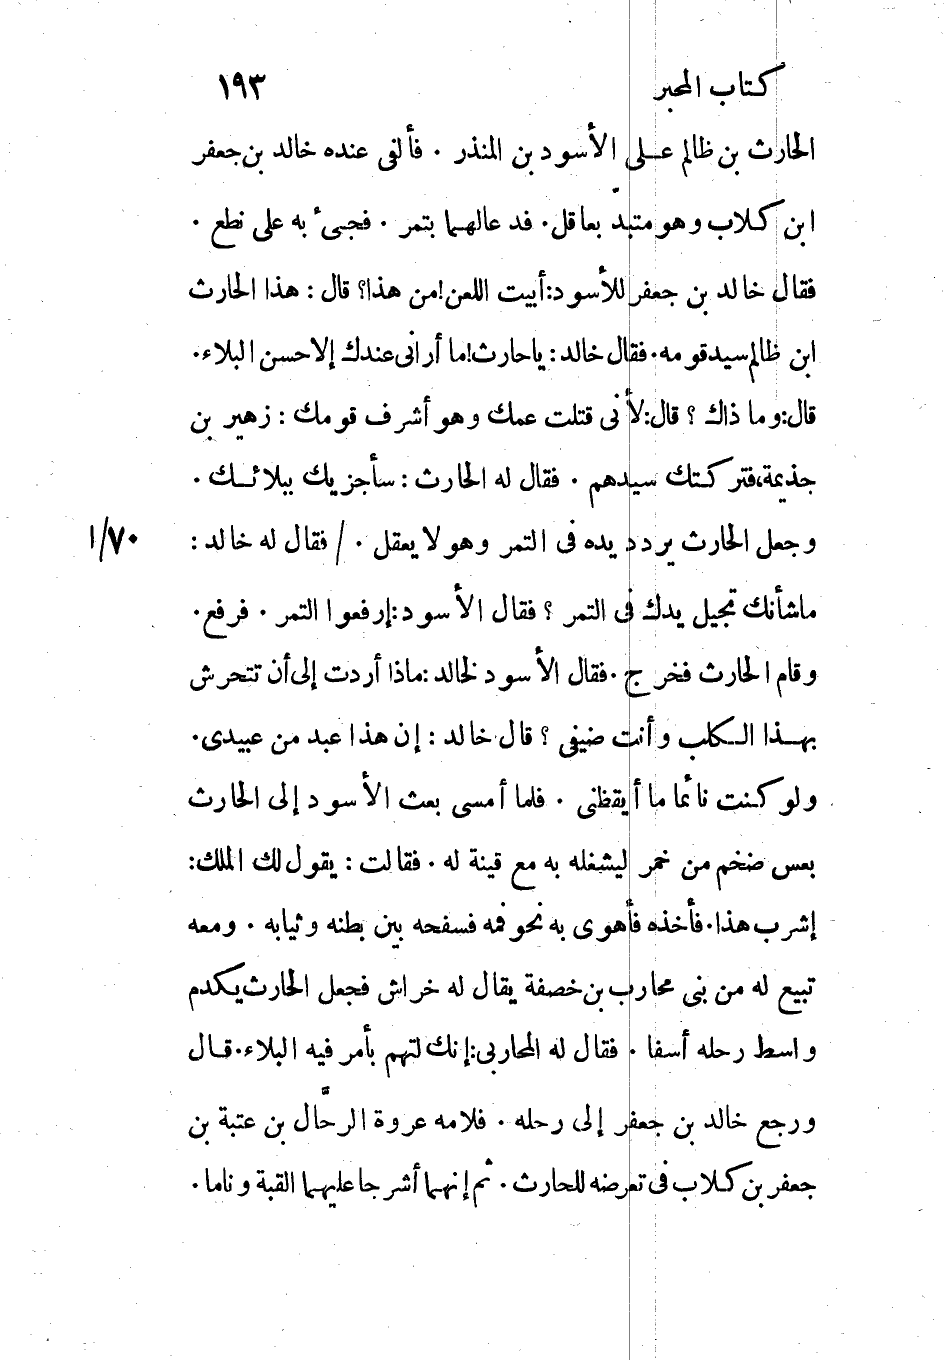 كتاب المحبر ١٩٣
الحارث بن ظالم على الأسود بن المنذر . فألفى عنده خالد بن جعفر
ابن كلاب وهو متبدّ بعاقل . قد عالهما بتمر . فجىء به على نطع .
فقال خالد بن جعفر للأسود: أبيت اللعن! من هذا؟ قال : هذا الحارث
ابن ظالم سيد قومه . فقال خالد : يا حارث! ما أرانى عندك إلا حسن البلاء .
قال: وما ذاك ؟ قال: لأنى قتلت عمك وهو أشرف قومك : زهير بن
جذيمة، فتركتك سيدهم . فقال له الحارث : سأجزيك ببلائك .
وجعل الحارث يردد يده فى التمر وهو لا يعقل . / فقال له خالد : ١/٧٠
ما شأنك تجيل يدك فى التمر ؟ فقال الأسود: إرفعوا التمر . فرفع .
وقام الحارث فخرج . فقال الأسود لخالد : ماذا أردت إلى أن تتحرش
بهذا الكلب وأنت ضيفى ؟ قال خالد : إن هذا عبد من عبيدى .
ولو كنت نائما ما أيقظنى . فلما أمسى بعث الأسود إلى الحارث
بعس ضخم من خمر ليشغله به مع قينة له . فقالت : يقول لك الملك :
إشرب هذا . فأخذه فأهوى به نحو فمه فسفحه بين بطنه وثيابه . ومعه
تبيع له من بنى محارب بن خصفة يقال له خراش فجعل الحارث يكدم
واسط رحله أسفا . فقال له المحاربى: إنك لتهم بأمر فيه البلاء . قال
ورجع خالد بن جعفر إلى رحله . فلامه عروة الرحّال بن عتبة بن
جعفر بن كلاب فى تعرضه للحارث . ثم إنهما أشرجا عليهما القبة وناما .